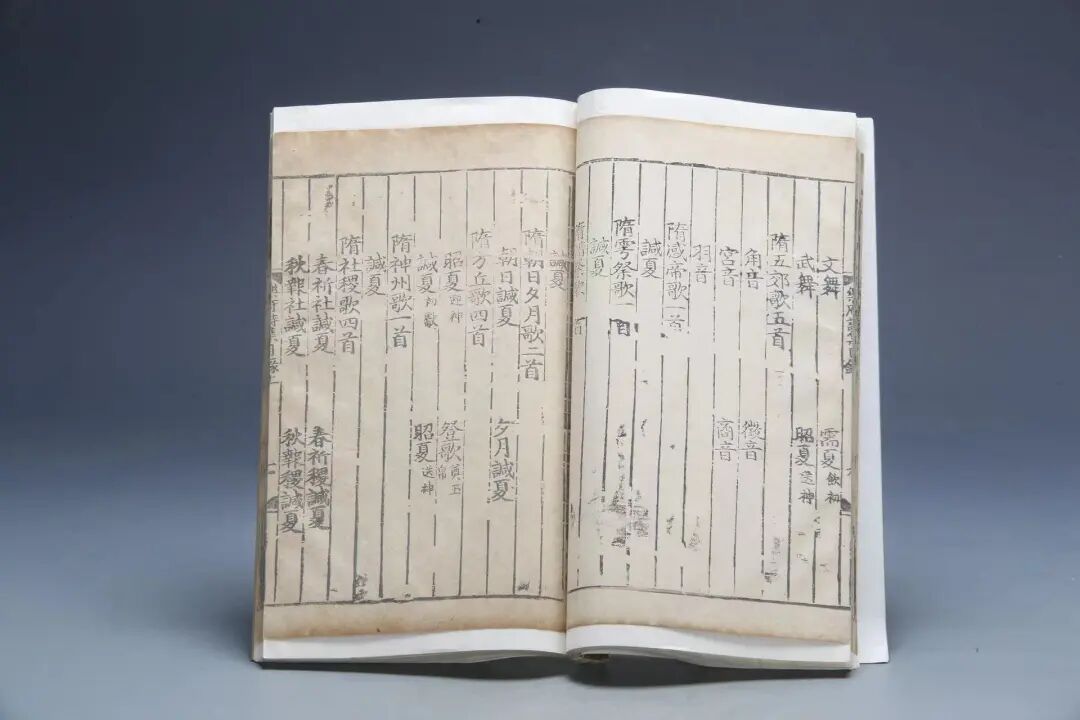 文舞 需夏飲初
武舞 昭夏送神
隋五郊歌五首
角音 徵音
宮音 商音
羽音
隋感帝歌一首
諴夏
隋雩祭歌一首
諴夏
諴夏
隋朝日夕月歌二首
朝日諴夏 夕月諴夏
隋方丘歌四首
昭夏迎神 登歌奠玉帛
諴夏初獻 昭夏送神
隋神州歌一首
諴夏
隋社稷歌四首
春祈社諴夏 春祈稷諴夏
秋報社諴夏 秋報稷諴夏